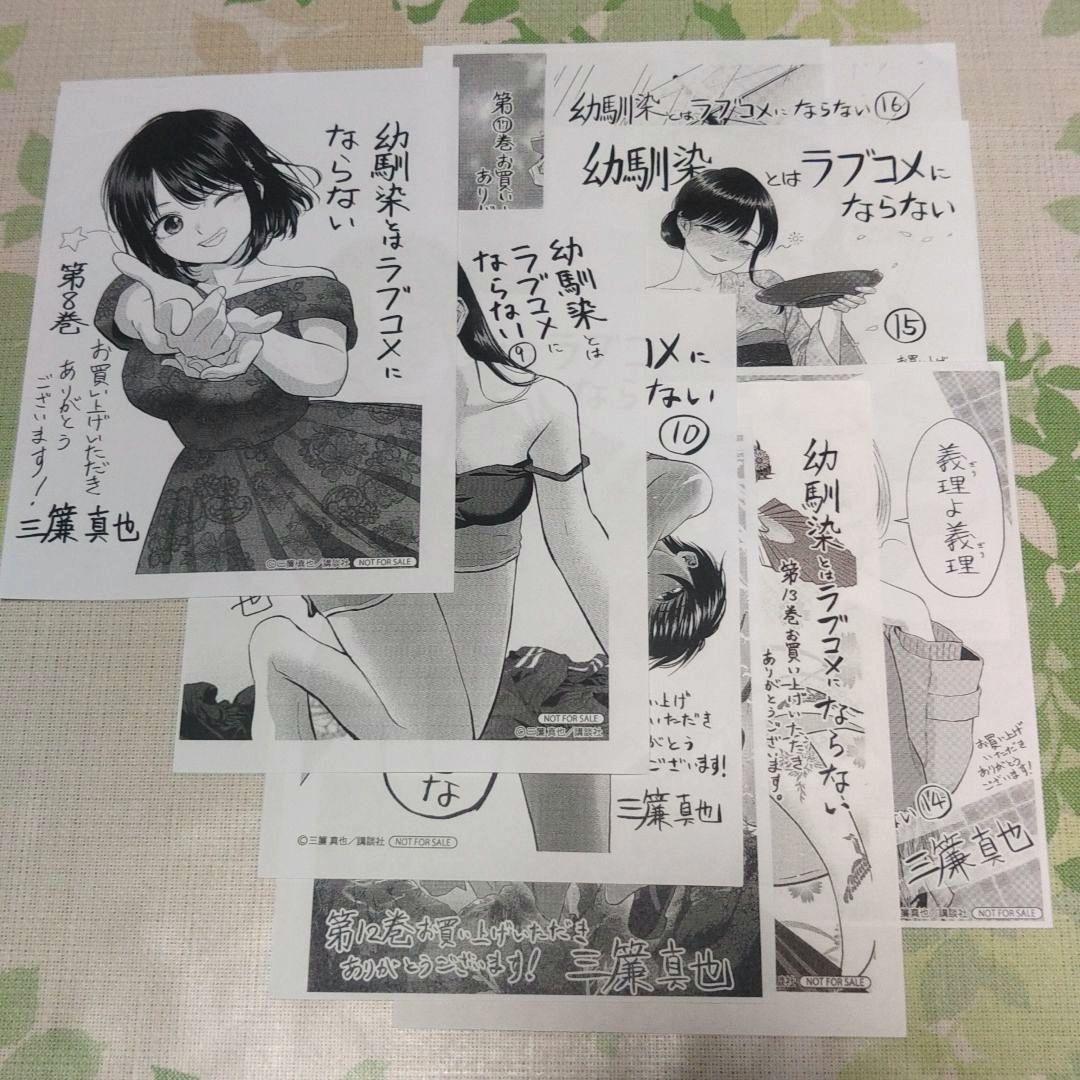 幼馴染とはラブコメに
ならない
第8巻
お買い上げいただき
ありがとう
ございます!
三簾真也
©三簾真也/講談社 NOT FOR SALE
第⑰巻お買い
幼馴染とはラブコメにならない⑯
幼馴染とはラブコメに
ならない
⑮
幼馴染とは
ラブコメに
ならない⑨
也
NOT FOR SALE
©三簾真也/講談社
メに
ない
⑩
いただき
がとう
ございます!
三簾真也
な
©三簾真也/講談社 NOT FOR SALE
第12巻お買い上げいただき
ありがとうございます!
三簾真也
幼馴染とはラブコメにならない
第13巻お買い上げいただき
ありがとうございます。
NOT FOR SALE
義理よ義理
ぎり
ぎり
お買い上げ
いただき
ありがとう
ございます!
ない⑭
三簾真也
三簾真也/講談社 NOT FOR SALE